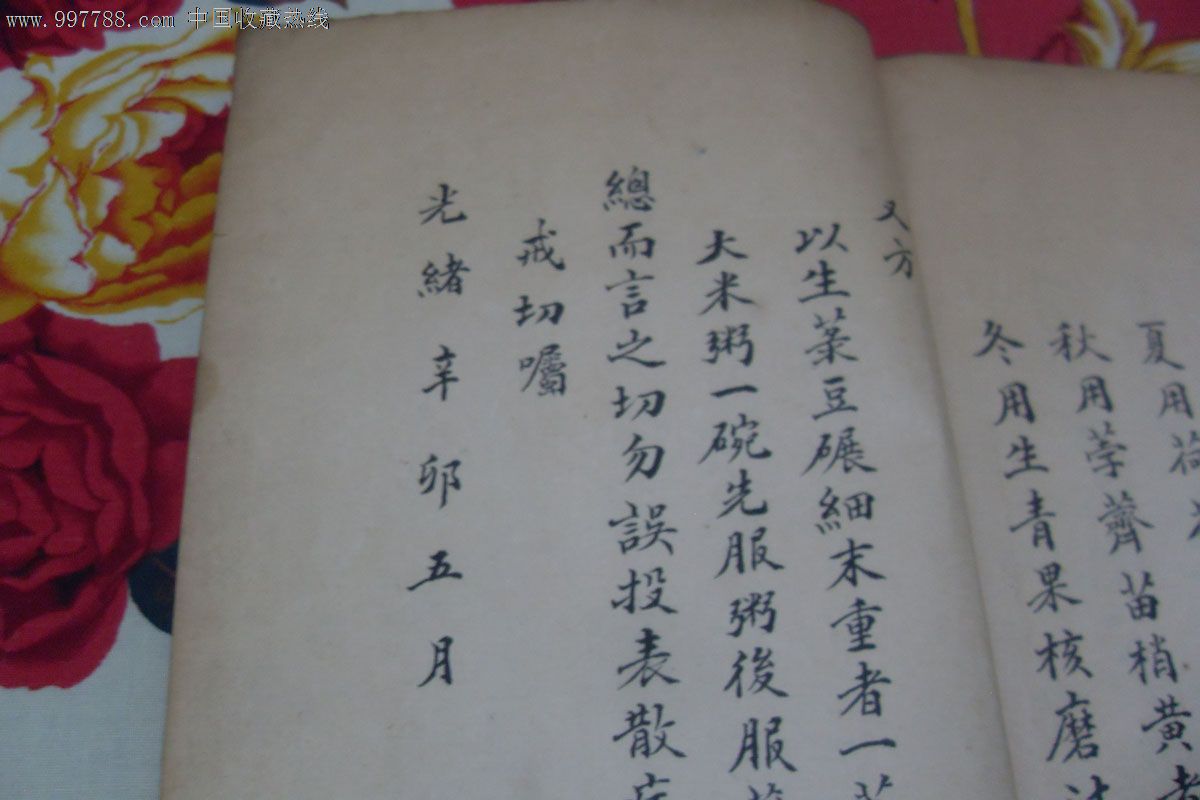 www.997788.com 中国收藏热线
夏用荷
秋用荸薺苗梢黄者
冬用生青果核磨
又方
以生菉豆碾細末重者一
大米粥一碗先服粥後服
總而言之切勿誤投表散
戒切囑
光緒辛卯五月